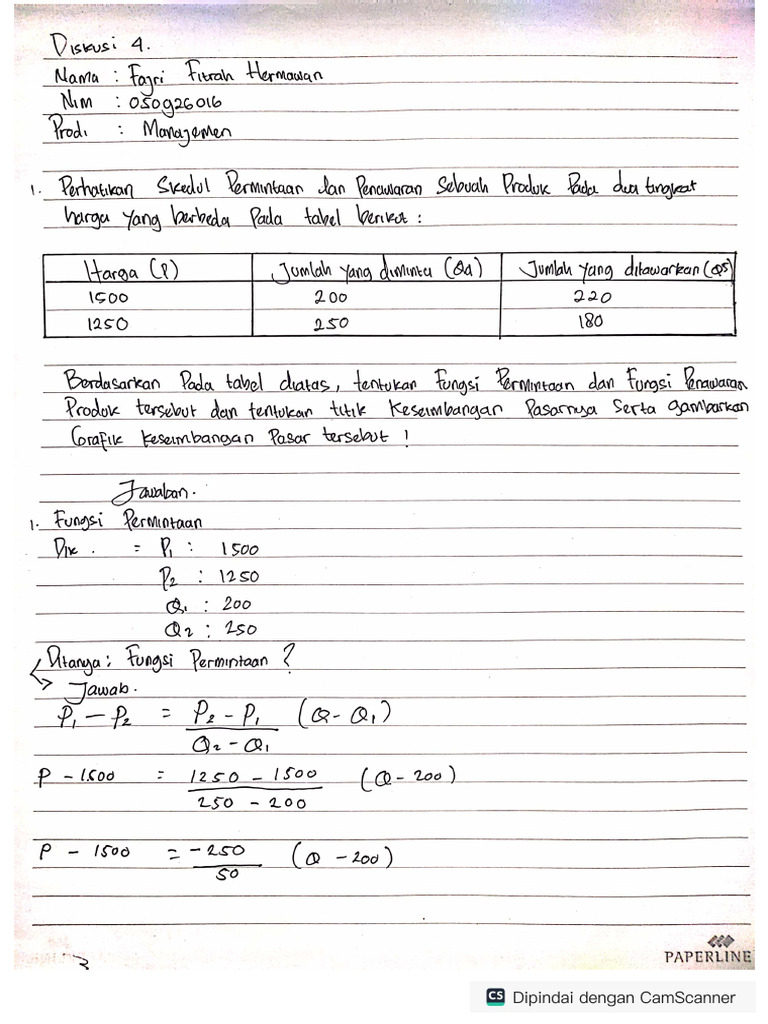 Diskusi 4.
Nama : Fajri Fitrah Hermawan
Nim : 050926016
Prodi : Manajemen
1. Perhatikan Skedul Permintaan dan Penawaran Sebuah Produk Pada dua tingkat
harga yang berbeda Pada tabel berikut :
Harga (P) Jumlah yang diminta (Qd) Jumlah yang ditawarkan (Qs)
1500 200 220
1250 250 180
Berdasarkan Pada tabel diatas, tentukan Fungsi Permintaan dan Fungsi Penawaran
Produk tersebut dan tentukan titik Keseimbangan Pasarnya Serta gambarkan
Grafik Keseimbangan Pasar tersebut !
Jawaban.
1. Fungsi Permintaan
Dik . = P1 : 1500
P2 : 1250
Q1 : 200
Q2 : 250
Ditanya : Fungsi Permintaan ?
Jawab.
P1 - P2 = P2 - P1 / Q2 - Q1 (Q - Q1)
P - 1500 = 1250 - 1500 / 250 - 200 (Q - 200)
P - 1500 = -250 / 50 (Q - 200)
PAPERLINE
CS Dipindai dengan CamScanner